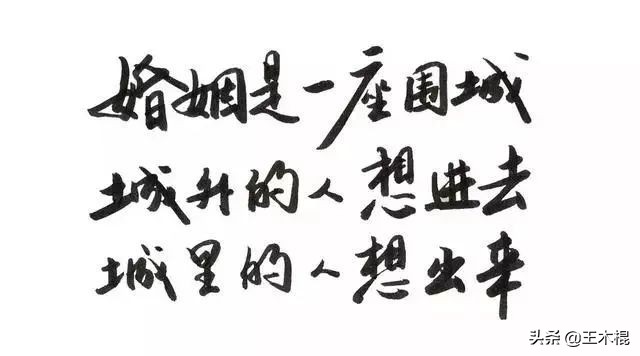 婚姻是一座围城
城外的人想进去
城里的人想出来
头条 @王木棍